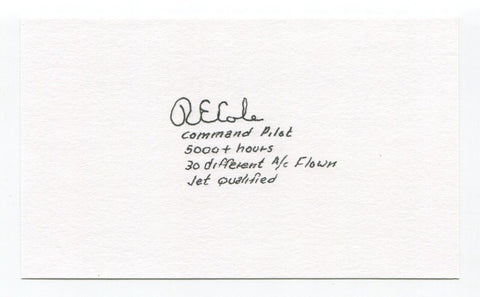 RECole
Command Pilot
5000+ hours
30 different A/c Flown
Jet qualified